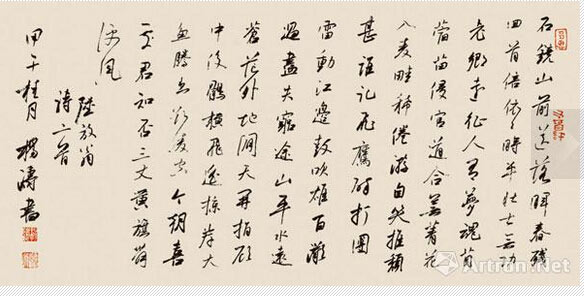 石鏡山前送落暉春殘
回首倍依依時平壯士無功
老鄉遠征人有夢歸苜
蓿苗侵官道合蕪菁花
入麥畦稀倦游自笑摧頹
甚誰記飛鷹醉打圍
雷動江邊鼓吹雄百灘
過盡失窮途山平水遠
蒼茫外地闊天開指顧
中俊鶻橫飛遙掠岸大
魚騰出欲凌空今朝喜
處君知否三丈黃旗舞
便風
陸放翁
詩二首
甲午桂月楊濤書
Artron.Net